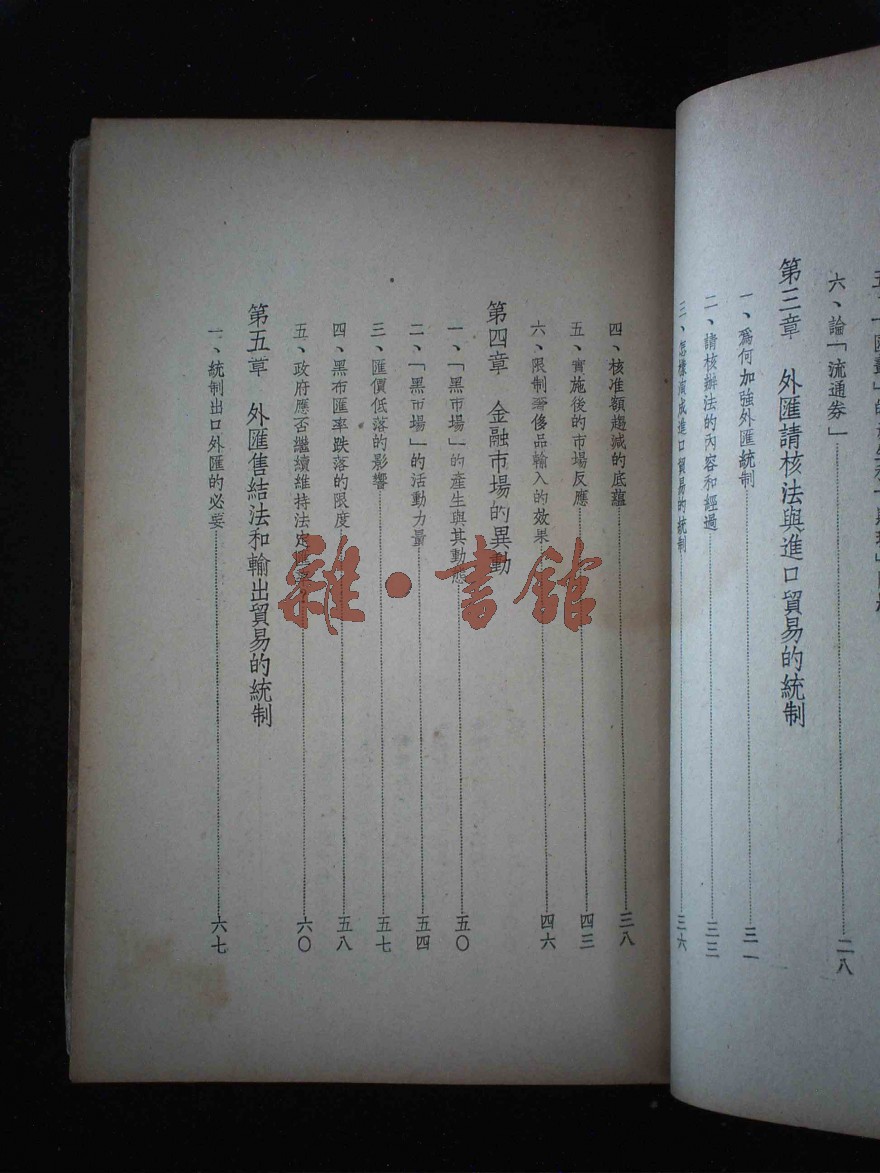 六、論「流通券」……二八
第三章 外匯請核法與進口貿易的統制
一、爲何加強外匯統制……三一
二、請核辦法的內容和經過……三三
三、怎樣演成進口貿易的統制……三六
四、核准額趨減的底蘊……三八
五、實施後的市場反應……四三
六、限制奢侈品輸入的效果……四六
第四章 金融市場的異動
一、「黑市場」的產生與其動態……五〇
二、「黑市場」的活動力量……五四
三、匯價低落的影響……五七
四、黑市匯率跌落的限度……五八
五、政府應否繼續維持法定……六〇
第五章 外匯售結法和輸出貿易的統制
一、統制出口外匯的必要……六七
雜·書館